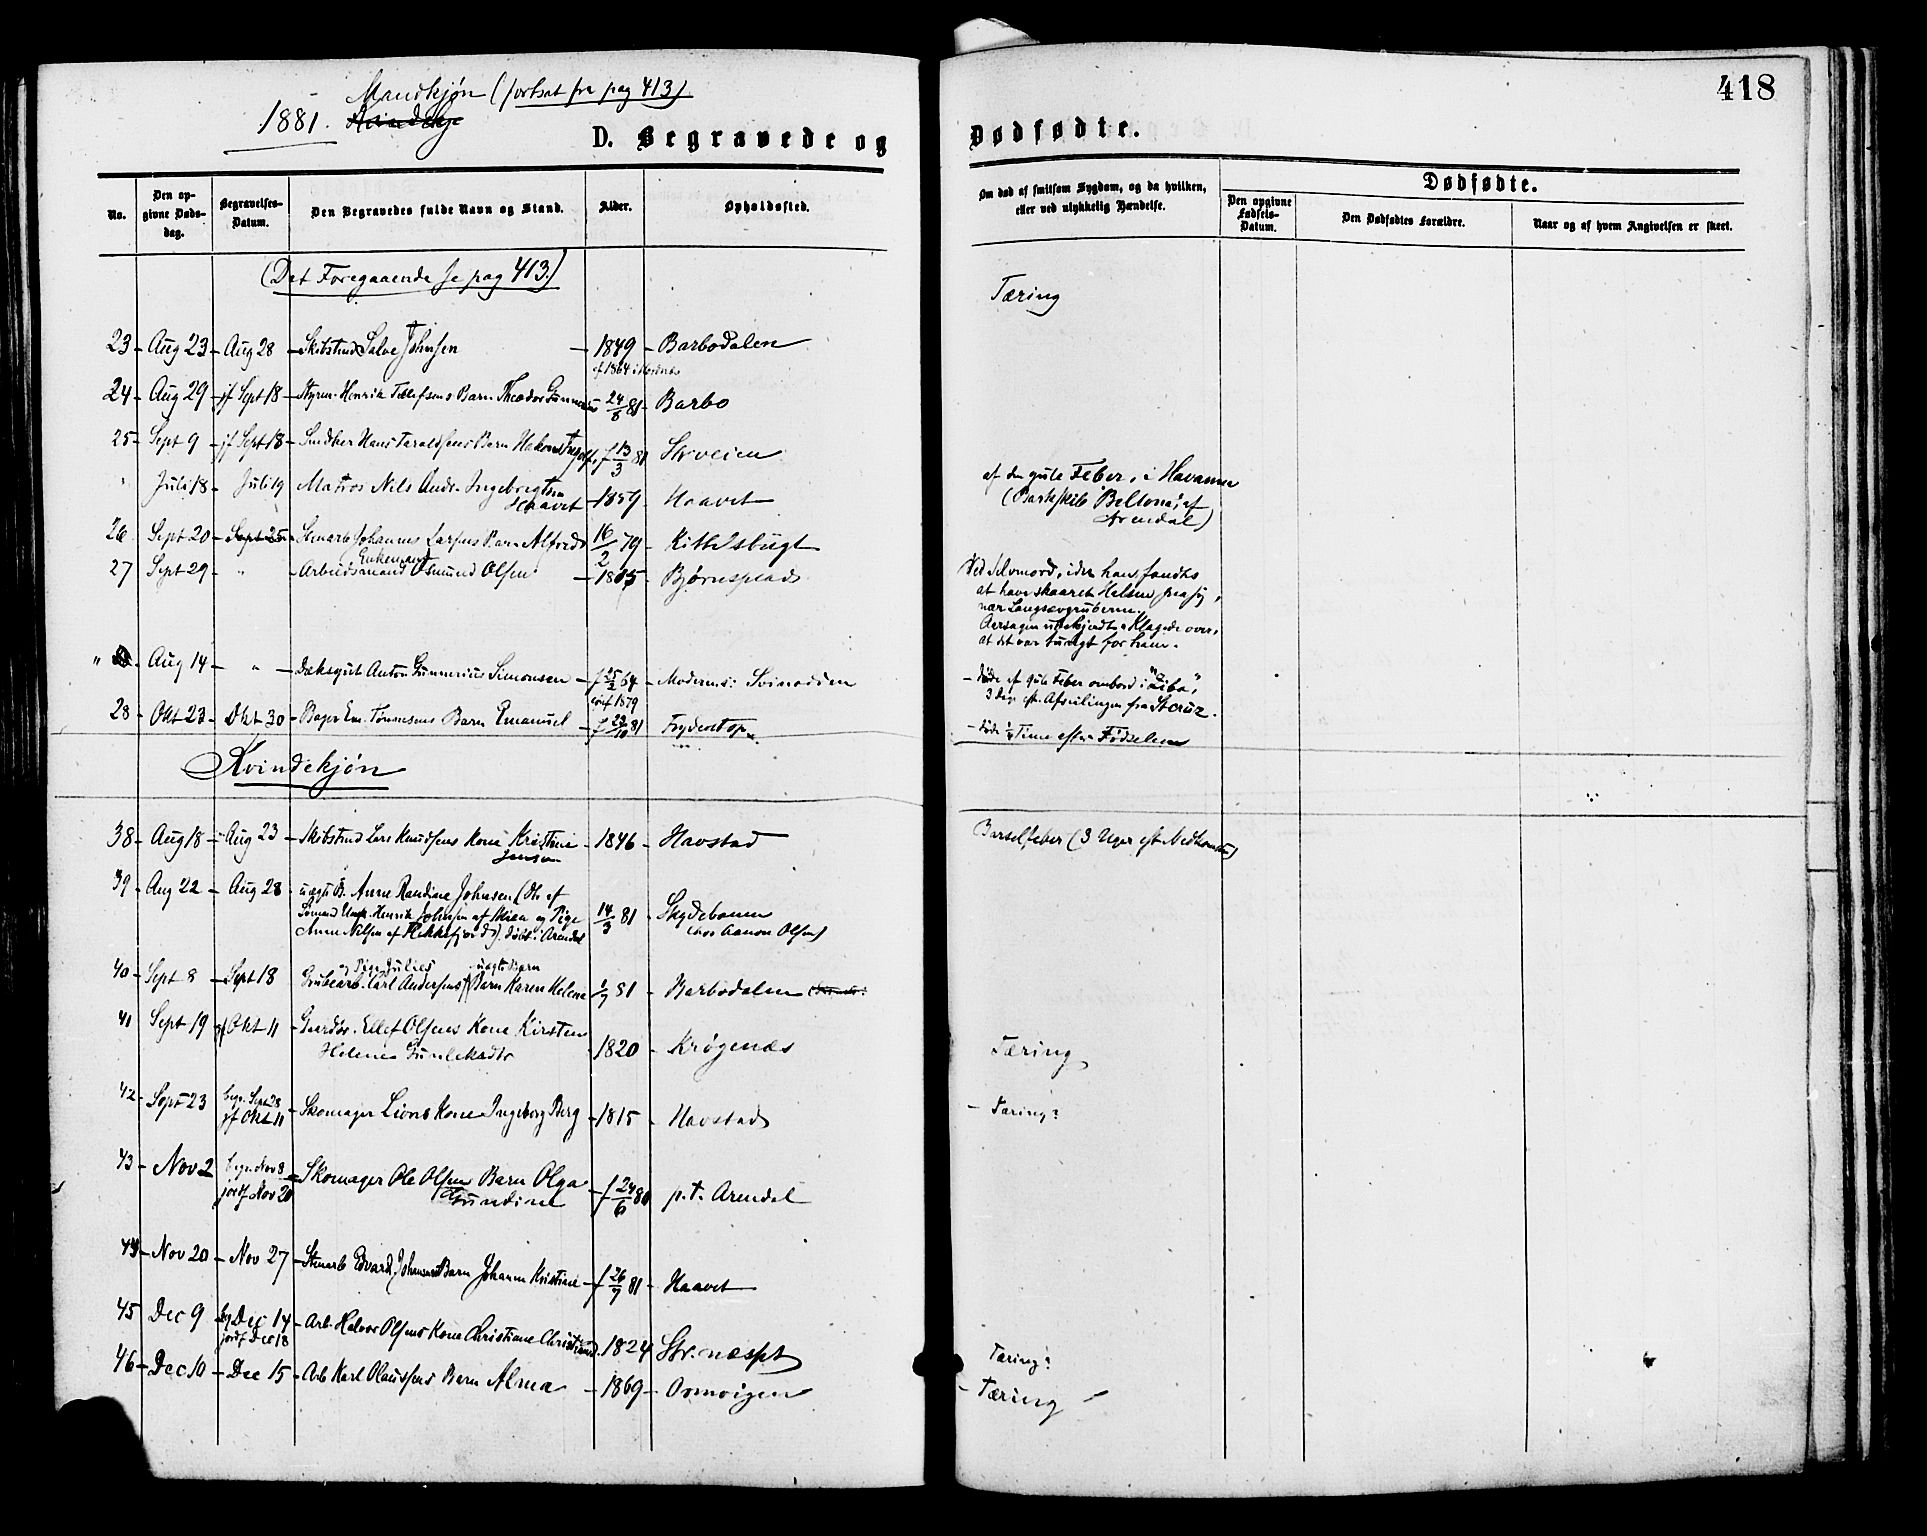 418
Mandkjøn (fortsat fra pag 413)
1881. Kvindekj
D. Begravede og Dødfødte.
No.
Den opgivne Dødsdag.
Begravelses-Datum.
Den Begravedes fulde Navn og Stand.
Alder.
Opholdssted.
Om død af smitsom Sygdom, og da hvilken, eller ved ulykkelig Hændelse.
Dødfødte.
Den opgivne Fødsels-Datum.
Den Dødfødtes Forældre.
Naar og af hvem Angivelsen er skeet.
(Det Foregaaende se pag 413)
23 - Aug 23 - Aug 28 - Skibstmd Salve Johnsen - 1849 - Barbodalen Tæring
24 - Aug 29 - jf Sept 18 - Styrm. Henrik Barn Theodor 24/8 81 - Barbo
25 - Sept 9 - jf Sept 18 - Hans Taraldsens Barn Hakon f 13/3 81 Strveien
" Juli 18 - Juli 19 Matros Nils Andr. Ingebrigtsen
Haavet - 1859 - Haavet af den gule Feber, i Havanna
(Barkskib "Bellona", af
Arendal)
26 Sept 20 - Sept 25 - Stenarb Johannes Larsens Barn Alfred 16/2 79 - Kittelsbugt
27 Sept 29 - " - Arbeidsmand Enkemand Osmund Olsen - 1815 - Bjørnsplads Ved Selvmord, idet han fandtes
at have skaaret Halsen paa sig,
nær Langsævgruberne.
Aarsagen ubekjendt. Klagede over,
at det var tungt for ham.
" Aug 14 - " - Dæksgut Anton Gunnerius Simonsen - f 25/2 64 - Svinodden - døde af gule Feber ombord i
3 Dage eft. Afseilingen fra St Cruz.
28 - Okt 23 - Okt 30 - Bager Em. Tønnesens Barn Emanuel - f 22/10 81 Frydentop - døde Time efter Fødselen
Kvindekjøn
38 - Aug 18 - Aug 23 - Skibstmd Lars Knudsens Kone Kristine
Jensen - 1846 - Havstad Barselfeber (3 Uger eft Nedkomsten)
39 - Aug 22 - Aug 28 - uægte B. Anne Randine Johnsen (Dtr af
Henrik Johnsen af og Pige
Anne Nilsen af Flekkefjord). døbt i Arendal 14/3 81 - Skydebanen
(hos Aanon Olsen)
40 - Sept 8 - Sept 18 og Pige Julies uægte Barn
Grubearb. Carl Andersens Barn Karen Helene 1/7 81 - Barbodalen
41 Sept 19 jf Okt 11 - Gaardbr. Ellef Olsens Kone Kirsten
Helene Gunleksdtr 1820 - Krøgenæs Tæring
42 - Sept 23 begr. Sept 28
jf Okt 11 - Skomager Lions Kone Ingeborg Berg - 1815 - Havstad - Tæring?
43 - Nov 2 begr. Nov 8
jordf Nov 20 - Skomager Ole Olsens Barn Olga
Gundine - f 24/6 80 p.t. Arendal
44 - Nov 20 - Nov 27 - Stenarb Edvard Johannesens Barn Johanne Kristine - f 26/7 81 - Haavet
45 - Dec 9 - bg Dec 14
jordf Dec 18 - Arb. Halvor Olsens Kone Christiane 1824 Str.næspt Tæring?
46 - Dec 10 - Dec 15 - Arb Karl Olaussens Barn Alma - 1869 - Ormvigen - Tæring